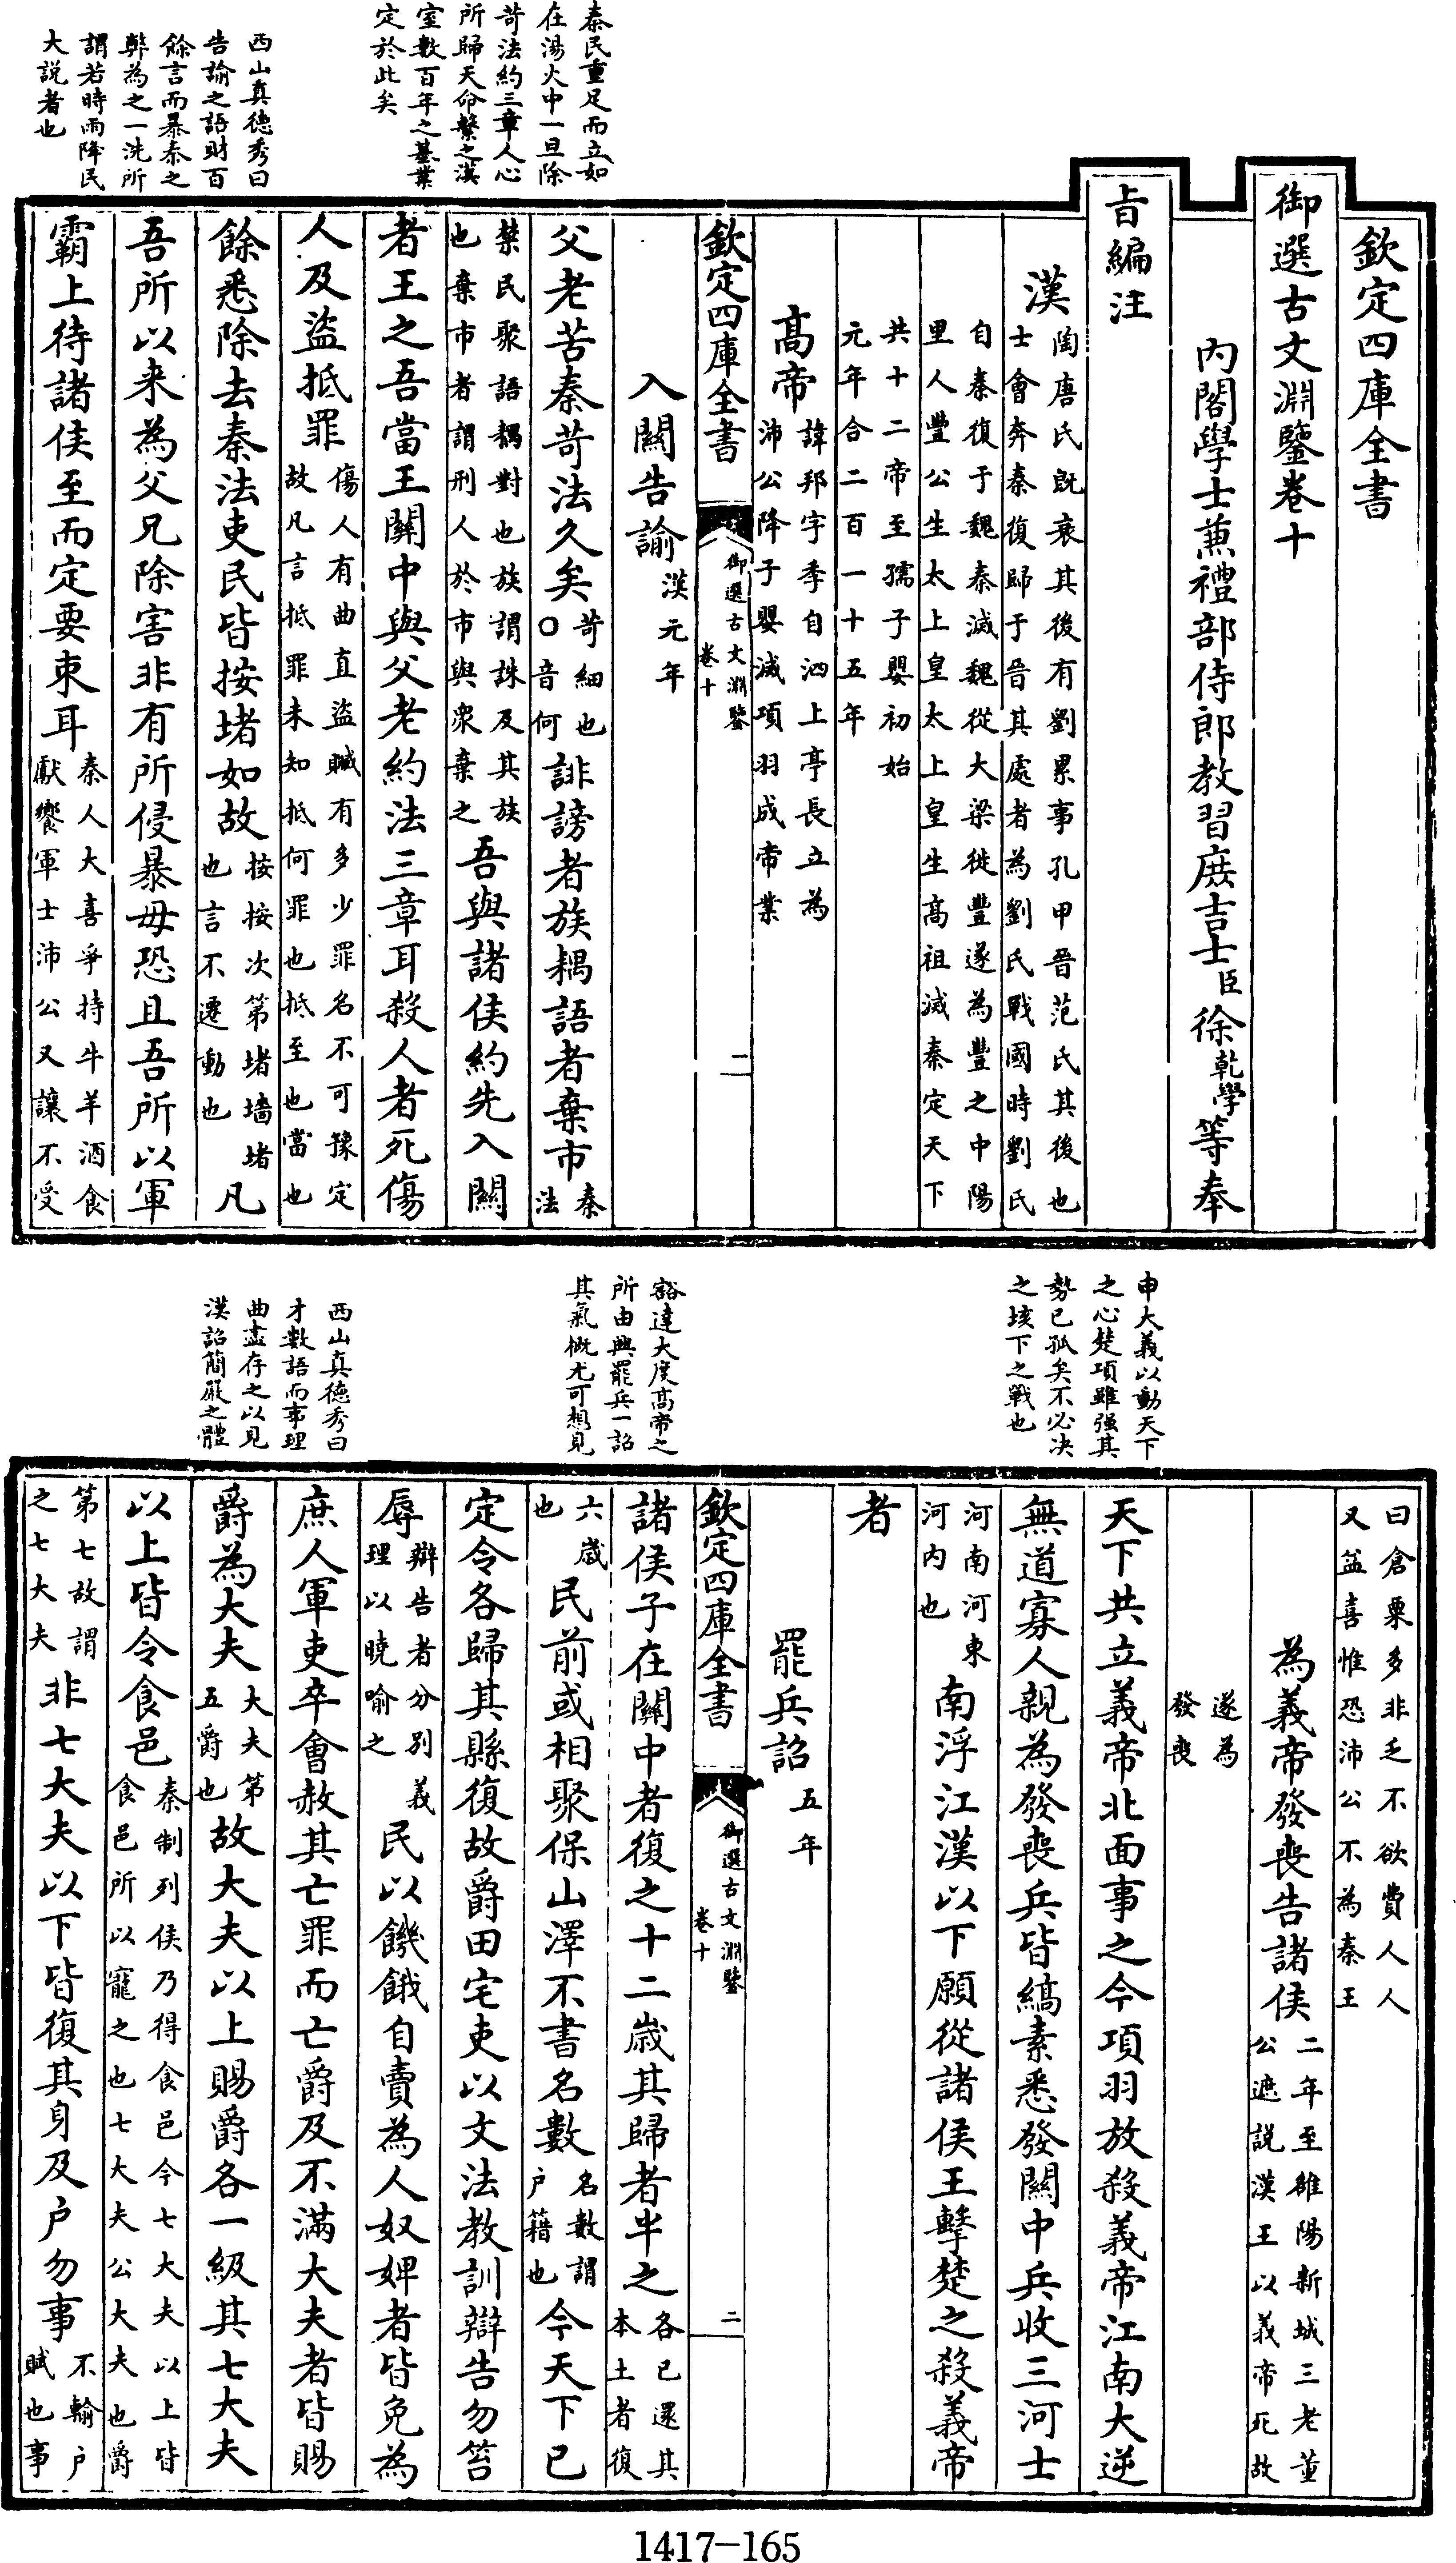 秦民重足而立如
在湯火中一旦除
苛法約三章人心
所歸天命繫之漢
室數百年之基業
定於此矣
西山真德秀曰
告諭之語財百
餘言而暴秦之
弊為之一洗所
謂若時雨降民
大説者也
欽定四庫全書
御選古文淵鑒卷十
內閣學士兼禮部侍郎教習庶吉士臣徐乾學等奉
旨編注
漢陶唐氏既衰其後有劉累事孔甲晉范氏其後也
士會奔秦復歸于晉其處者為劉氏戰國時劉氏
自秦復于魏秦滅魏從大梁徙豐遂為豐之中陽
里人豐公生太上皇太上皇生高祖滅秦定天下
共十二帝至孺子嬰初始
元年合二百一十五年
高帝諱邦字季自泗上亭長立為
沛公降子嬰滅項羽成帝業
欽定四庫全書
御選古文淵鑒
卷十
一
入關告諭漢元年
父老苦秦苛法久矣苛細也
○音何誹謗者族耦語者棄市秦
法
禁民聚語耦對也族謂誅及其族
也棄市者謂刑人於市與衆棄之吾與諸侯約先入關
者王之吾當王關中與父老約法三章耳殺人者死傷
人及盜抵罪傷人有曲直盜贓有多少罪名不可豫定
故凡言抵罪未知抵何罪也抵至也當也
餘悉除去秦法吏民皆按堵如故按按次第堵墻堵
也言不遷動也凡
吾所以来為父兄除害非有所侵暴毋恐且吾所以軍
霸上待諸侯至而定要束耳秦人大喜爭持牛羊酒食
獻饗軍士沛公又讓不受
申大義以動天下
之心楚項雖强其
勢已孤矣不必决
之垓下之戰也
豁達大度高帝之
所由興罷兵一詔
其氣概尤可想見
西山真德秀曰
才數語而事理
曲盡存之以見
漢詔簡嚴之體
曰倉粟多非乏不欲費人人
又益喜惟恐沛公不為秦王
為義帝發喪告諸侯二年至雒陽新城三老董
公遮説漢王以義帝死故
遂為
發喪
天下共立義帝北面事之今項羽放殺義帝江南大逆
無道寡人親為發喪兵皆縞素悉發關中兵收三河士
河南河東
河内也南浮江漢以下願從諸侯王擊楚之殺義帝
者
罷兵詔五年
欽定四庫全書
御選古文淵鑒
卷十
二
諸侯子在關中者復之十二歲其歸者半之各已還其
本土者復
六歲
也民前或相聚保山澤不書名數名數謂
户籍也今天下已
定令各歸其縣復故爵田宅吏以文法教訓辯告勿笞
辱辯告者分别義
理以曉喻之民以饑餓自賣為人奴婢者皆免為
庶人軍吏卒會赦其亡罪而亡爵及不滿大夫者皆賜
爵為大夫大夫第
五爵也故大夫以上賜爵各一級其七大夫
以上皆令食邑秦制列侯乃得食邑今七大夫以上皆
食邑所以寵之也七大夫公大夫也爵
第七故謂
之七大夫非七大夫以下皆復其身及户勿事不輸户
賦也事
1417-165